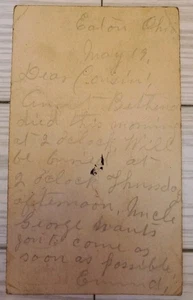 Eaton, Ohio
19,
Dear Cousin,
Aunt
died this morning
at 2 o'clock, Will
be buried at
2 o'clock Thursday
afternoon, Uncle
George wants
you to come as
soon as possible,